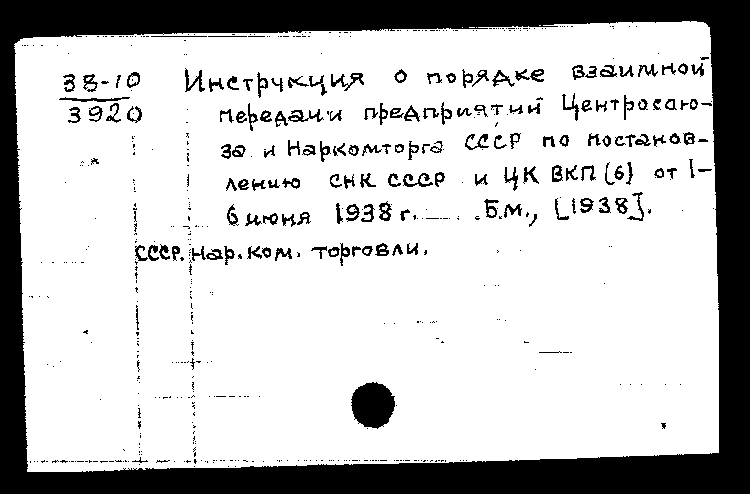 38-10 Инструкция о порядке взаимной
3920 передачи предприятий Центросою-
за и Наркомторга СССР по постанов-
лению СНК СССР и ЦК ВКП(б) от 1-
6 июня 1938 г. Б.м., [1938].
СССР. Нар. ком. торговли.